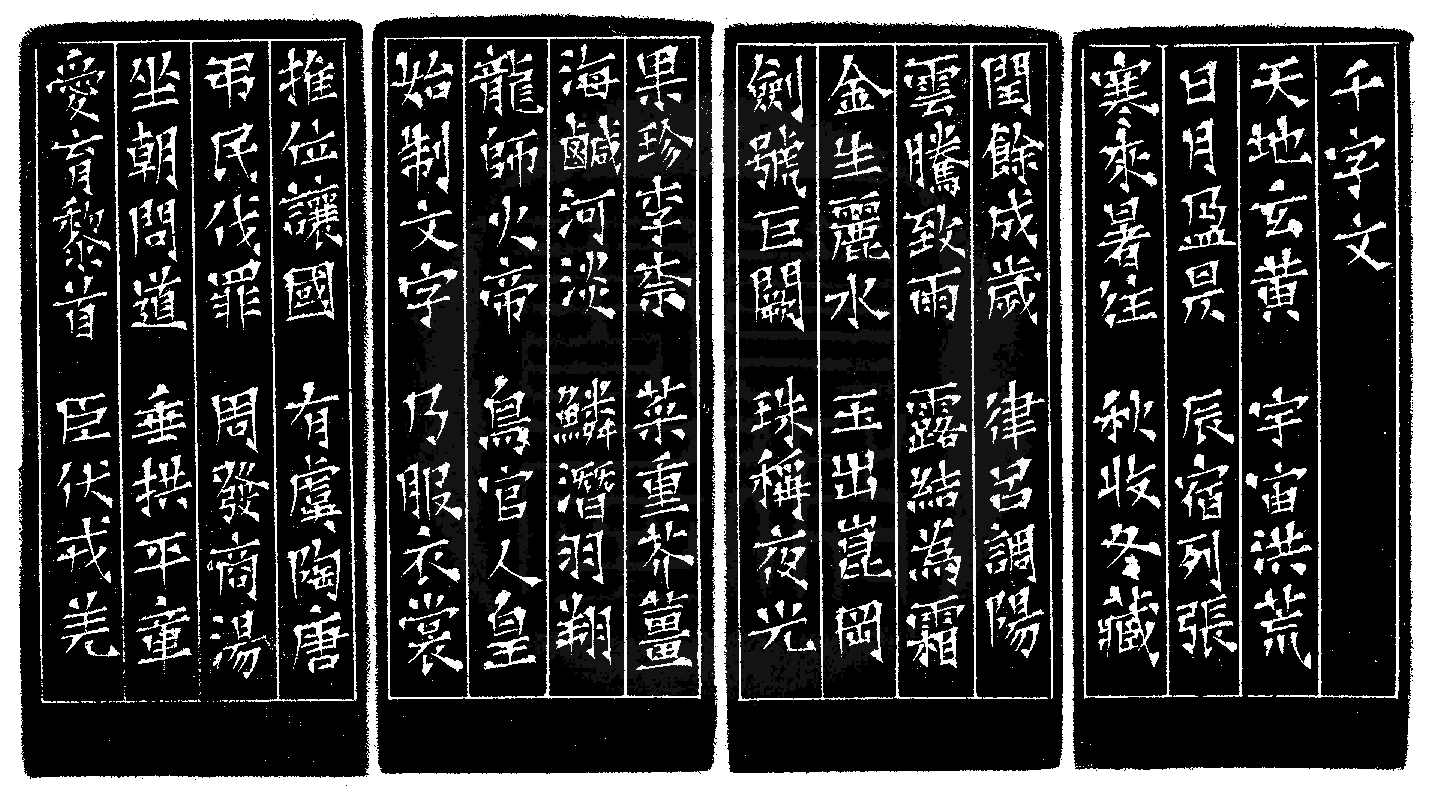 千字文
天地玄黃 宇宙洪荒
日月盈昃 辰宿列張
寒來暑往 秋收冬藏
閏餘成歲 律呂調陽
雲騰致雨 露結為霜
金生麗水 玉出崑岡
劍號巨闕 珠稱夜光
果珍李柰 菜重芥薑
海鹹河淡 鱗潛羽翔
龍師火帝 鳥官人皇
始制文字 乃服衣裳
推位讓國 有虞陶唐
弔民伐罪 周發商湯
坐朝問道 垂拱平章
愛育黎首 臣伏戎羌